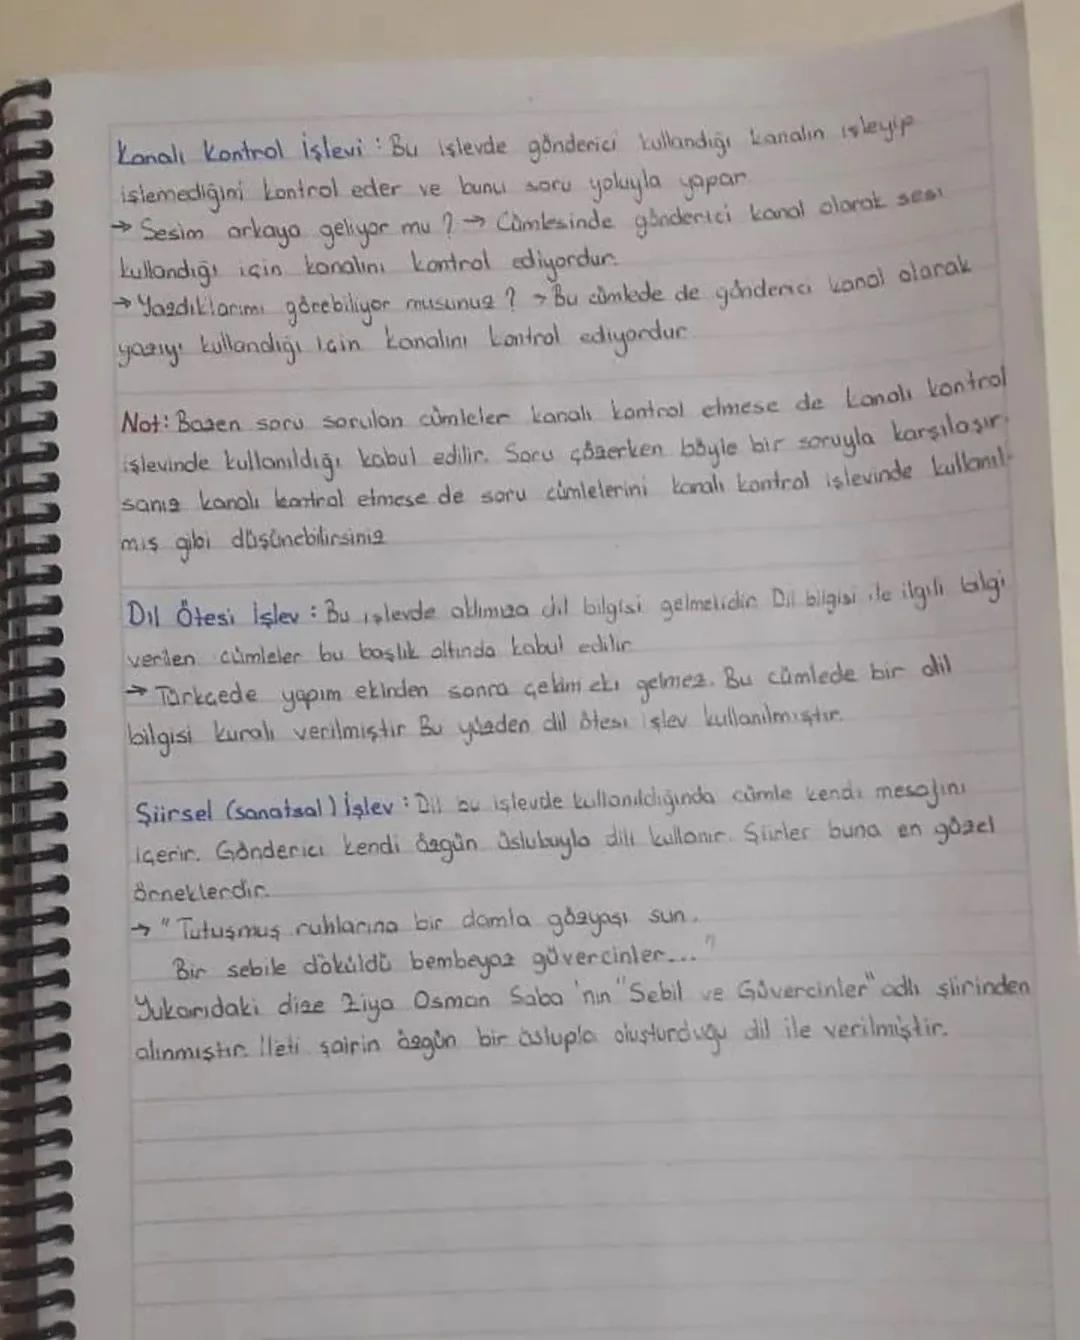 Kanalı Kontrol İşlevi : Bu işlevde gönderici kullandığı kanalın işleyip
işlemediğini kontrol eder ve bunu soru yoluyla yapar.
→ Sesim arkaya geliyor mu ? → Cümlesinde gönderici kanal olarak sesi
kullandığı için kanalını kontrol ediyordur.
→ Yazdıklarımı görebiliyor musunuz ? → Bu cümlede de gönderici kanal olarak
yazıyı kullandığı için kanalını kontrol ediyordur.
Not: Bazen soru sorulan cümleler kanalı kontrol etmese de kanalı kontrol
işlevinde kullanıldığı kabul edilir. Soru çözerken böyle bir soruyla karşılaşır-
sanız kanalı kontrol etmese de soru cümlelerini kanalı kontrol işlevinde kullanıl-
mış gibi düşünebilirsiniz
Dil Ötesi İşlev : Bu işlevde aklımıza dil bilgisi gelmelidir. Dil bilgisi ile ilgili bilgi
verilen cümleler bu başlık altında kabul edilir
→ Türkçede yapım ekinden sonra çekim eki gelmez. Bu cümlede bir dil
bilgisi kuralı verilmiştir Bu yüzden dil ötesi işlev kullanılmıştır.
Şiirsel (sanatsal) İşlev : Dil bu işlevde kullanıldığında cümle kendi mesajını
içerir. Gönderici kendi özgün üslubuyla dili kullanır. Şiirler buna en güzel
örneklerdir.
→ " Tutuşmuş ruhlarına bir damla gözyaşı sun.
Bir sebile döküldü bembeyaz güvercinler... "
Yukarıdaki dize Ziya Osman Saba 'nın "Sebil ve Güvercinler" adlı şiirinden
alınmıştır. İleti şairin özgün bir üslupla oluşturduğu dil ile verilmiştir.